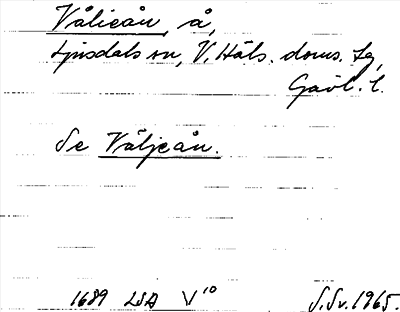 Vålicån, å,
Ljusdals sn, V. Häls. doms. lg,
Gävl. l.
Se Våljeån.
1689 LSA V10 S.Sv. 1965.